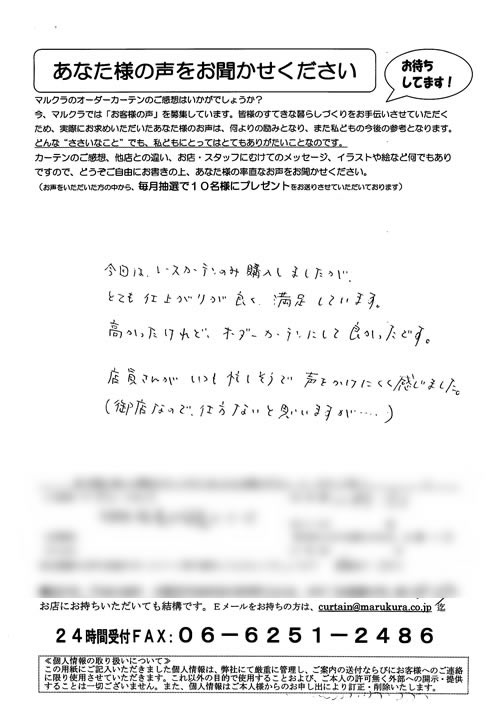 あなた様の声をお聞かせください
お待ち
してます!
マルクラのオーダーカーテンのご感想はいかがでしょうか?
今、マルクラでは「お客様の声」を募集しています。皆様のすてきな暮らしづくりをお手伝いさせていただく
ため、実際にお求めいただいたあなた様のお声は、何よりの励みとなり、また私どもの今後の参考となります。
どんな“ささいなこと”でも、私どもにとってはとてもありがたいことなのです。
カーテンのご感想、他店との違い、お店・スタッフにむけてのメッセージ、イラストや絵など何でもあり
ですので、どうぞご自由にお書きの上、あなた様の率直なお声をお聞かせください。
(お声をいただいた方の中から、毎月抽選で10名様にプレゼントをお送りさせていただいております)
今回は、レースカーテンのみ購入しましたが、
とても仕上がりが良く、満足しています。
高かったけれど、オーダーカーテンにして良かったです。
店員さんがいつも忙しそうで声をかけにくく感じました。
(御店なので、仕方ないと思いますが……)
お店にお持ちいただいても結構です。Eメールをお持ちの方は、curtain@marukura.co.jp 迄
24時間受付FAX:06-6251-2486
≪個人情報の取り扱いについて≫
この用紙にご記入いただきました個人情報は、弊社にて厳重に管理し、ご案内の送付ならびにお客様へのご連絡
に限り使用させていただきます。これ以外の目的で使用することおよび、ご本人の許可無く外部への開示・提供
することは一切ございません。また、個人情報はご本人様からのお申し出により訂正・削除いたします。